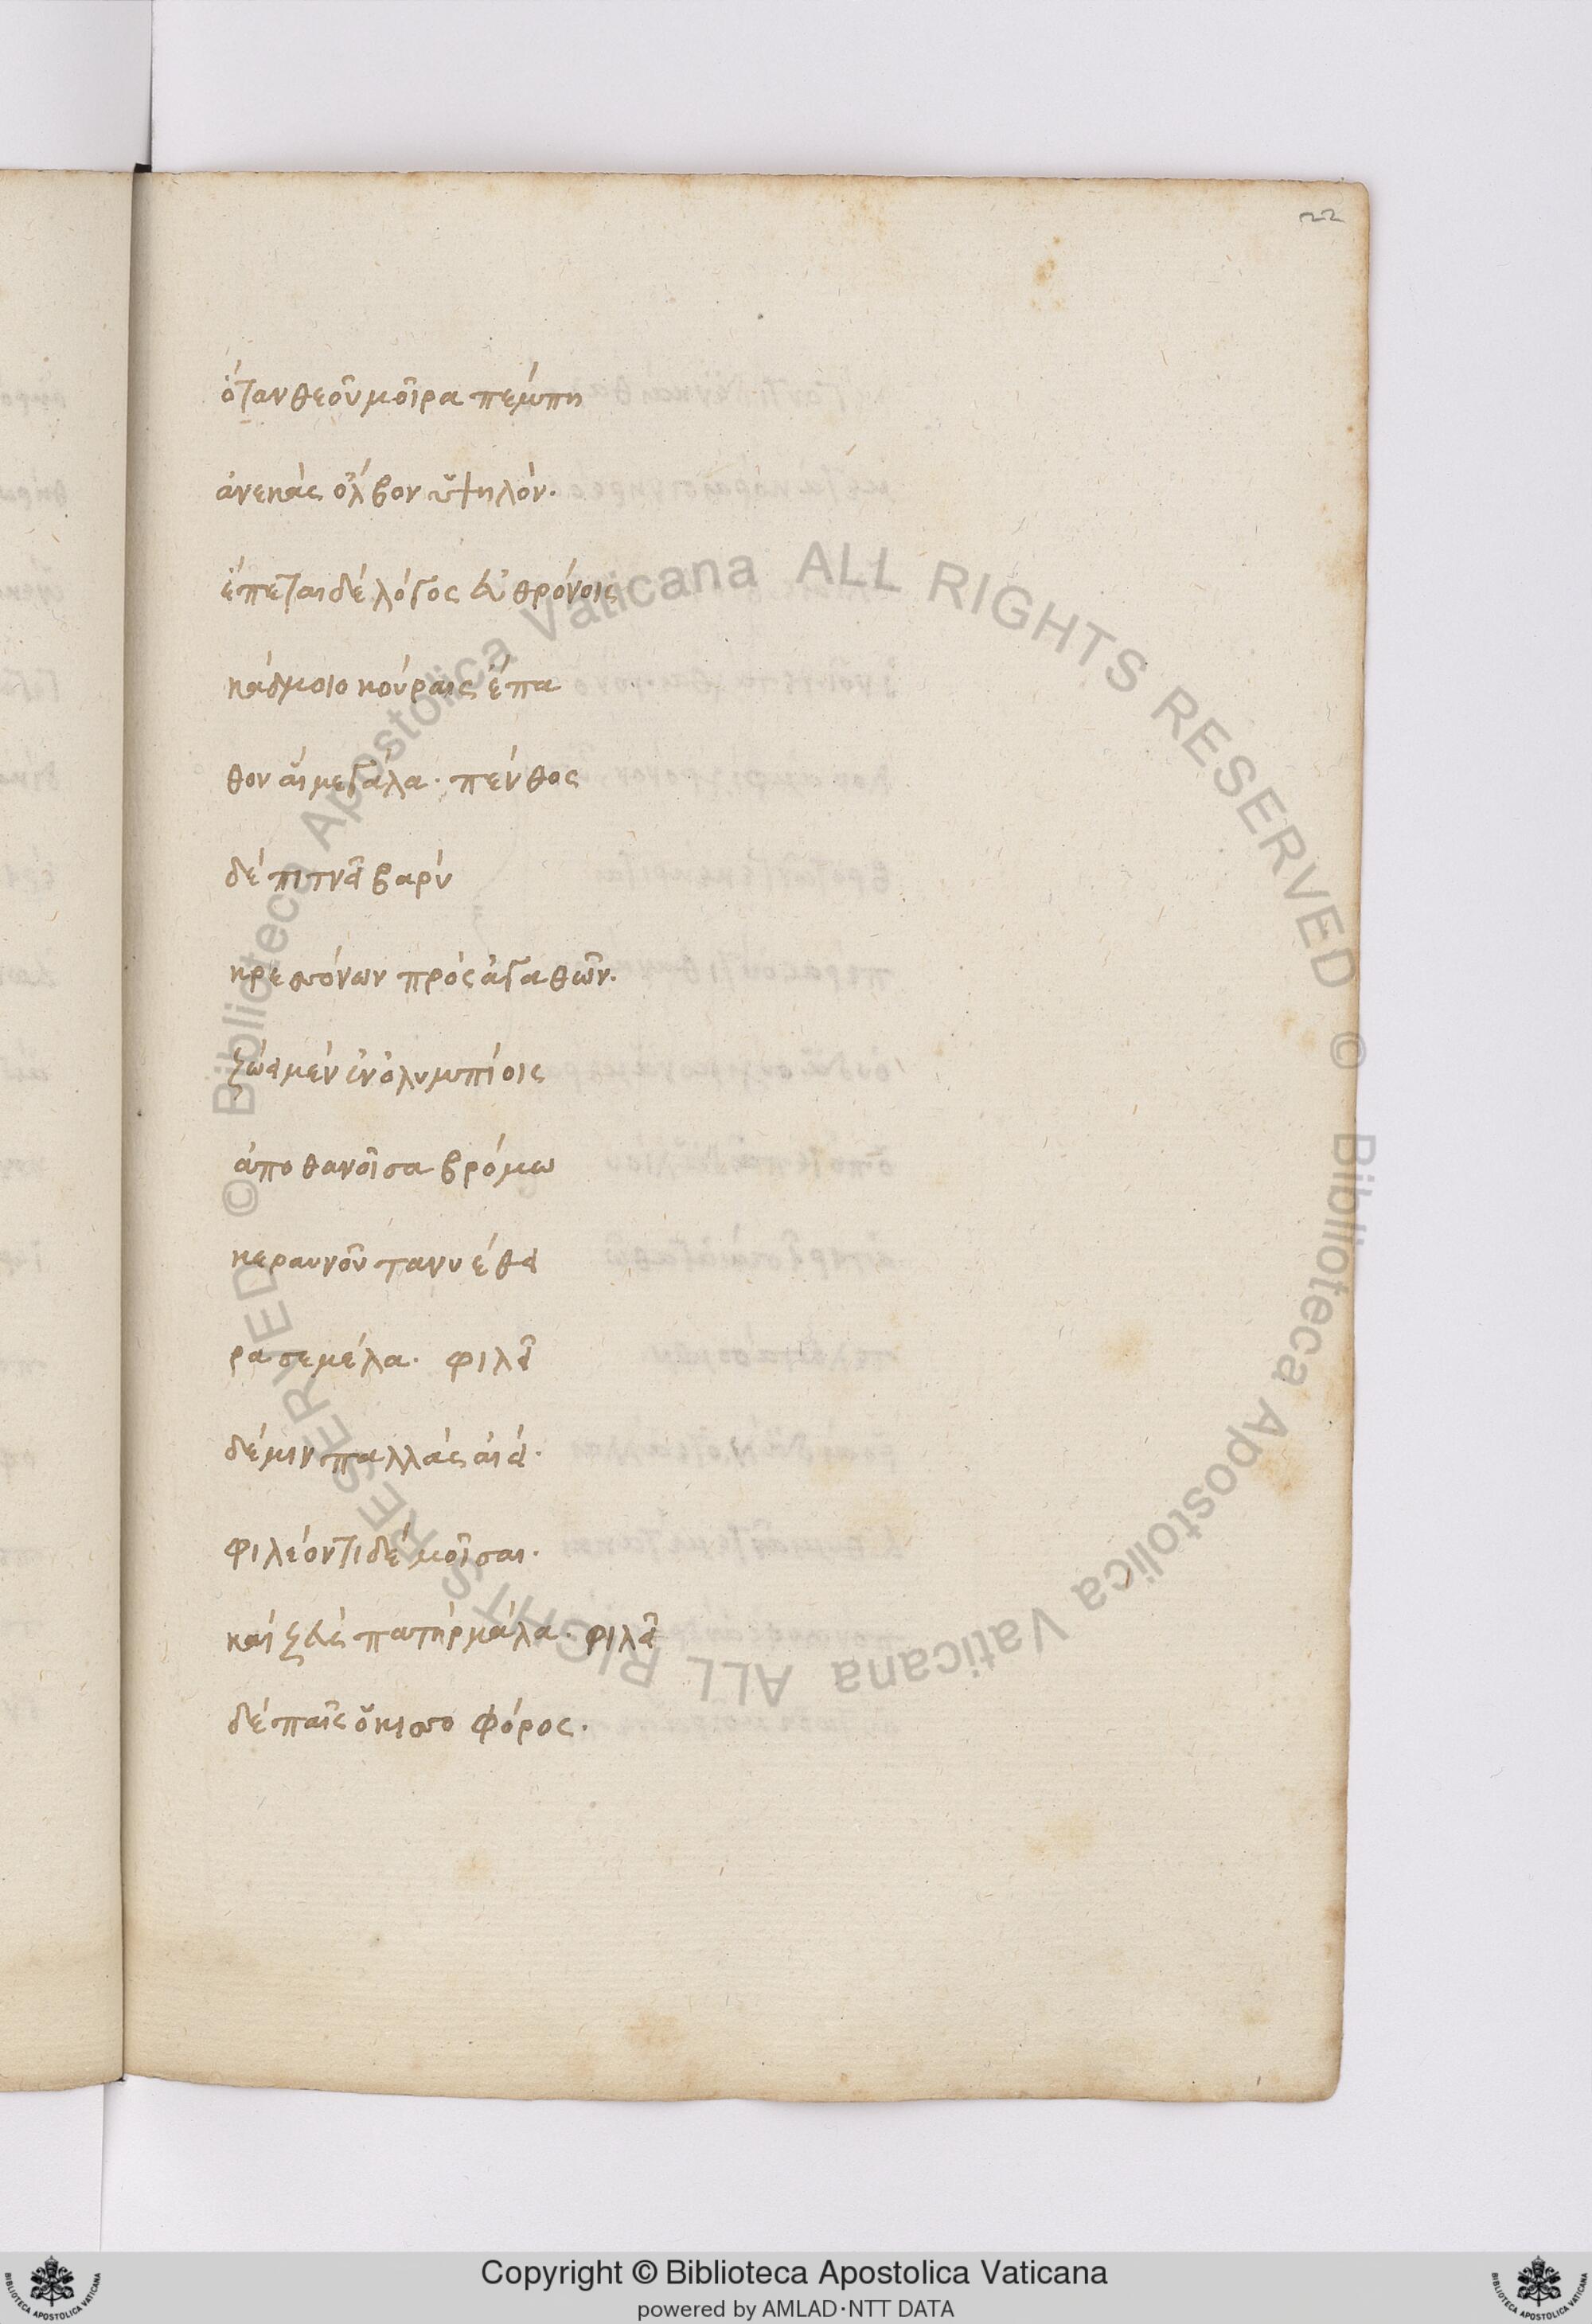 22
ὅταν θεοῦ μοῖρα πέμπη
ἀνεκὰς ὄλβον ὑψηλόν.
ἕπεται δὲ λόγος εὐθρόνοις
κάδμοιο κούραις ἔπα
θον αἳ μεγάλα· πένθος
δὲ πιτνᾶ βαρὺ
κρεσσόνων πρὸς ἀγαθῶν.
ζώα μὲν ἐν ὀλυμπίοις
ἀποθανοῖσα βρόμω
κεραυνοῦ τανυέθα
ρα σεμέλα· φιλᾶ
δέ μιν παλλὰς αἰά·
φιλέοντι δὲ μοῖσαι·
καὶ ζεὺς πατὴρ μάλα· φιλᾶ
δὲ παῖς ὁ κισσοφόρος·
© Biblioteca Apostolica Vaticana ALL RIGHTS RESERVED
© Biblioteca Apostolica Vaticana ALL RIGHTS RESERVED
Copyright © Biblioteca Apostolica Vaticana
powered by AMLAD·NTT DATA
BIBLIOTECA APOSTOLICA VATICANA
BIBLIOTECA APOSTOLICA VATICANA